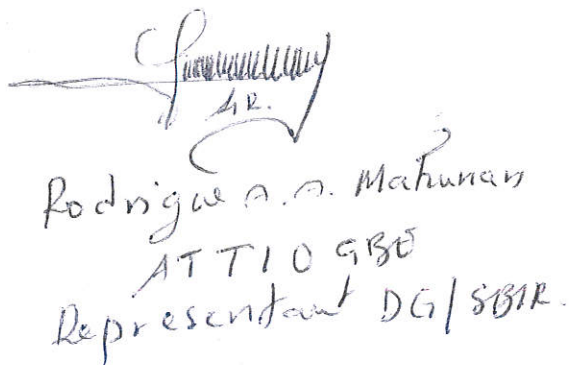 AR.
Rodrigue A.A. Mahunan
ATTIOGBE
Représentant DG/SBIR.